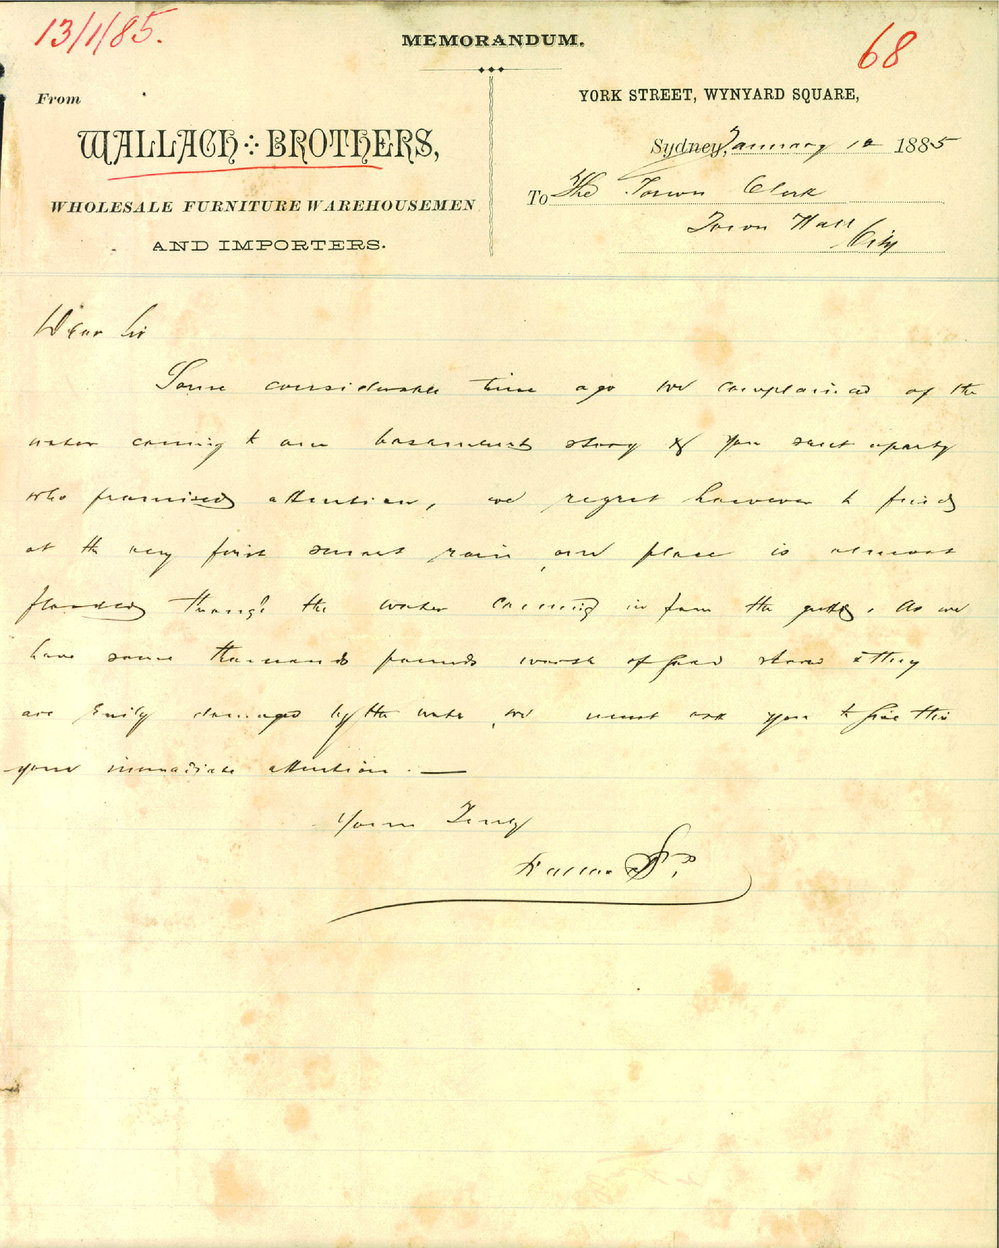 13/1/85.
MEMORANDUM.
68
From
WALLACH BROTHERS,
WHOLESALE FURNITURE WAREHOUSEMEN
AND IMPORTERS.
YORK STREET, WYNYARD SQUARE,
Sydney, January 12 1885
To The Town Clerk
Town Hall
City
Dear Sir
Some considerable time ago we complained of the
water coming to our basement story & you sent a party
who promised attention, we regret however to find
at the very first smart rain, our place is almost
flooded through the water coming in from the . As we
have some thousands pounds worth of good store & they
are easily damaged by the water, we must ask you to give this
your immediate attention. —
Yours Truly